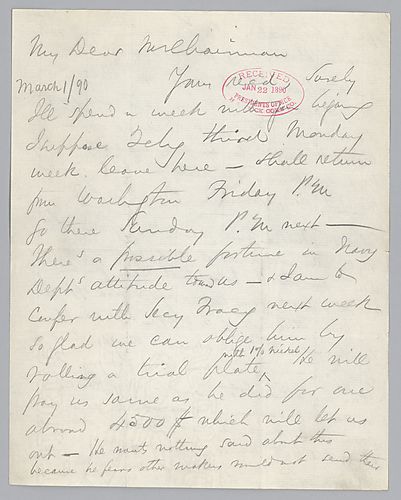 My Dear Mr Chairman
March 1/90
Yours read, Surely
RECEIVED
JAN 22 1890
PRESIDENT'S OFFICE
I'll spend a week with
I suppose Feby third Monday
week leave here — shall return
from Washington Friday P.M
Go there Sunday P.M next —
There's a possible fortune in Navy
Dept's attitude towds us — & I am to
Confer with Secy Tracy next week
So glad we can oblige him by
rolling a trial plate
with 1% nickel
He will
pay us same as he did for one
abroad 4500 $ which will let us
out — He wants nothing said about this
because he fears other makers would not send their